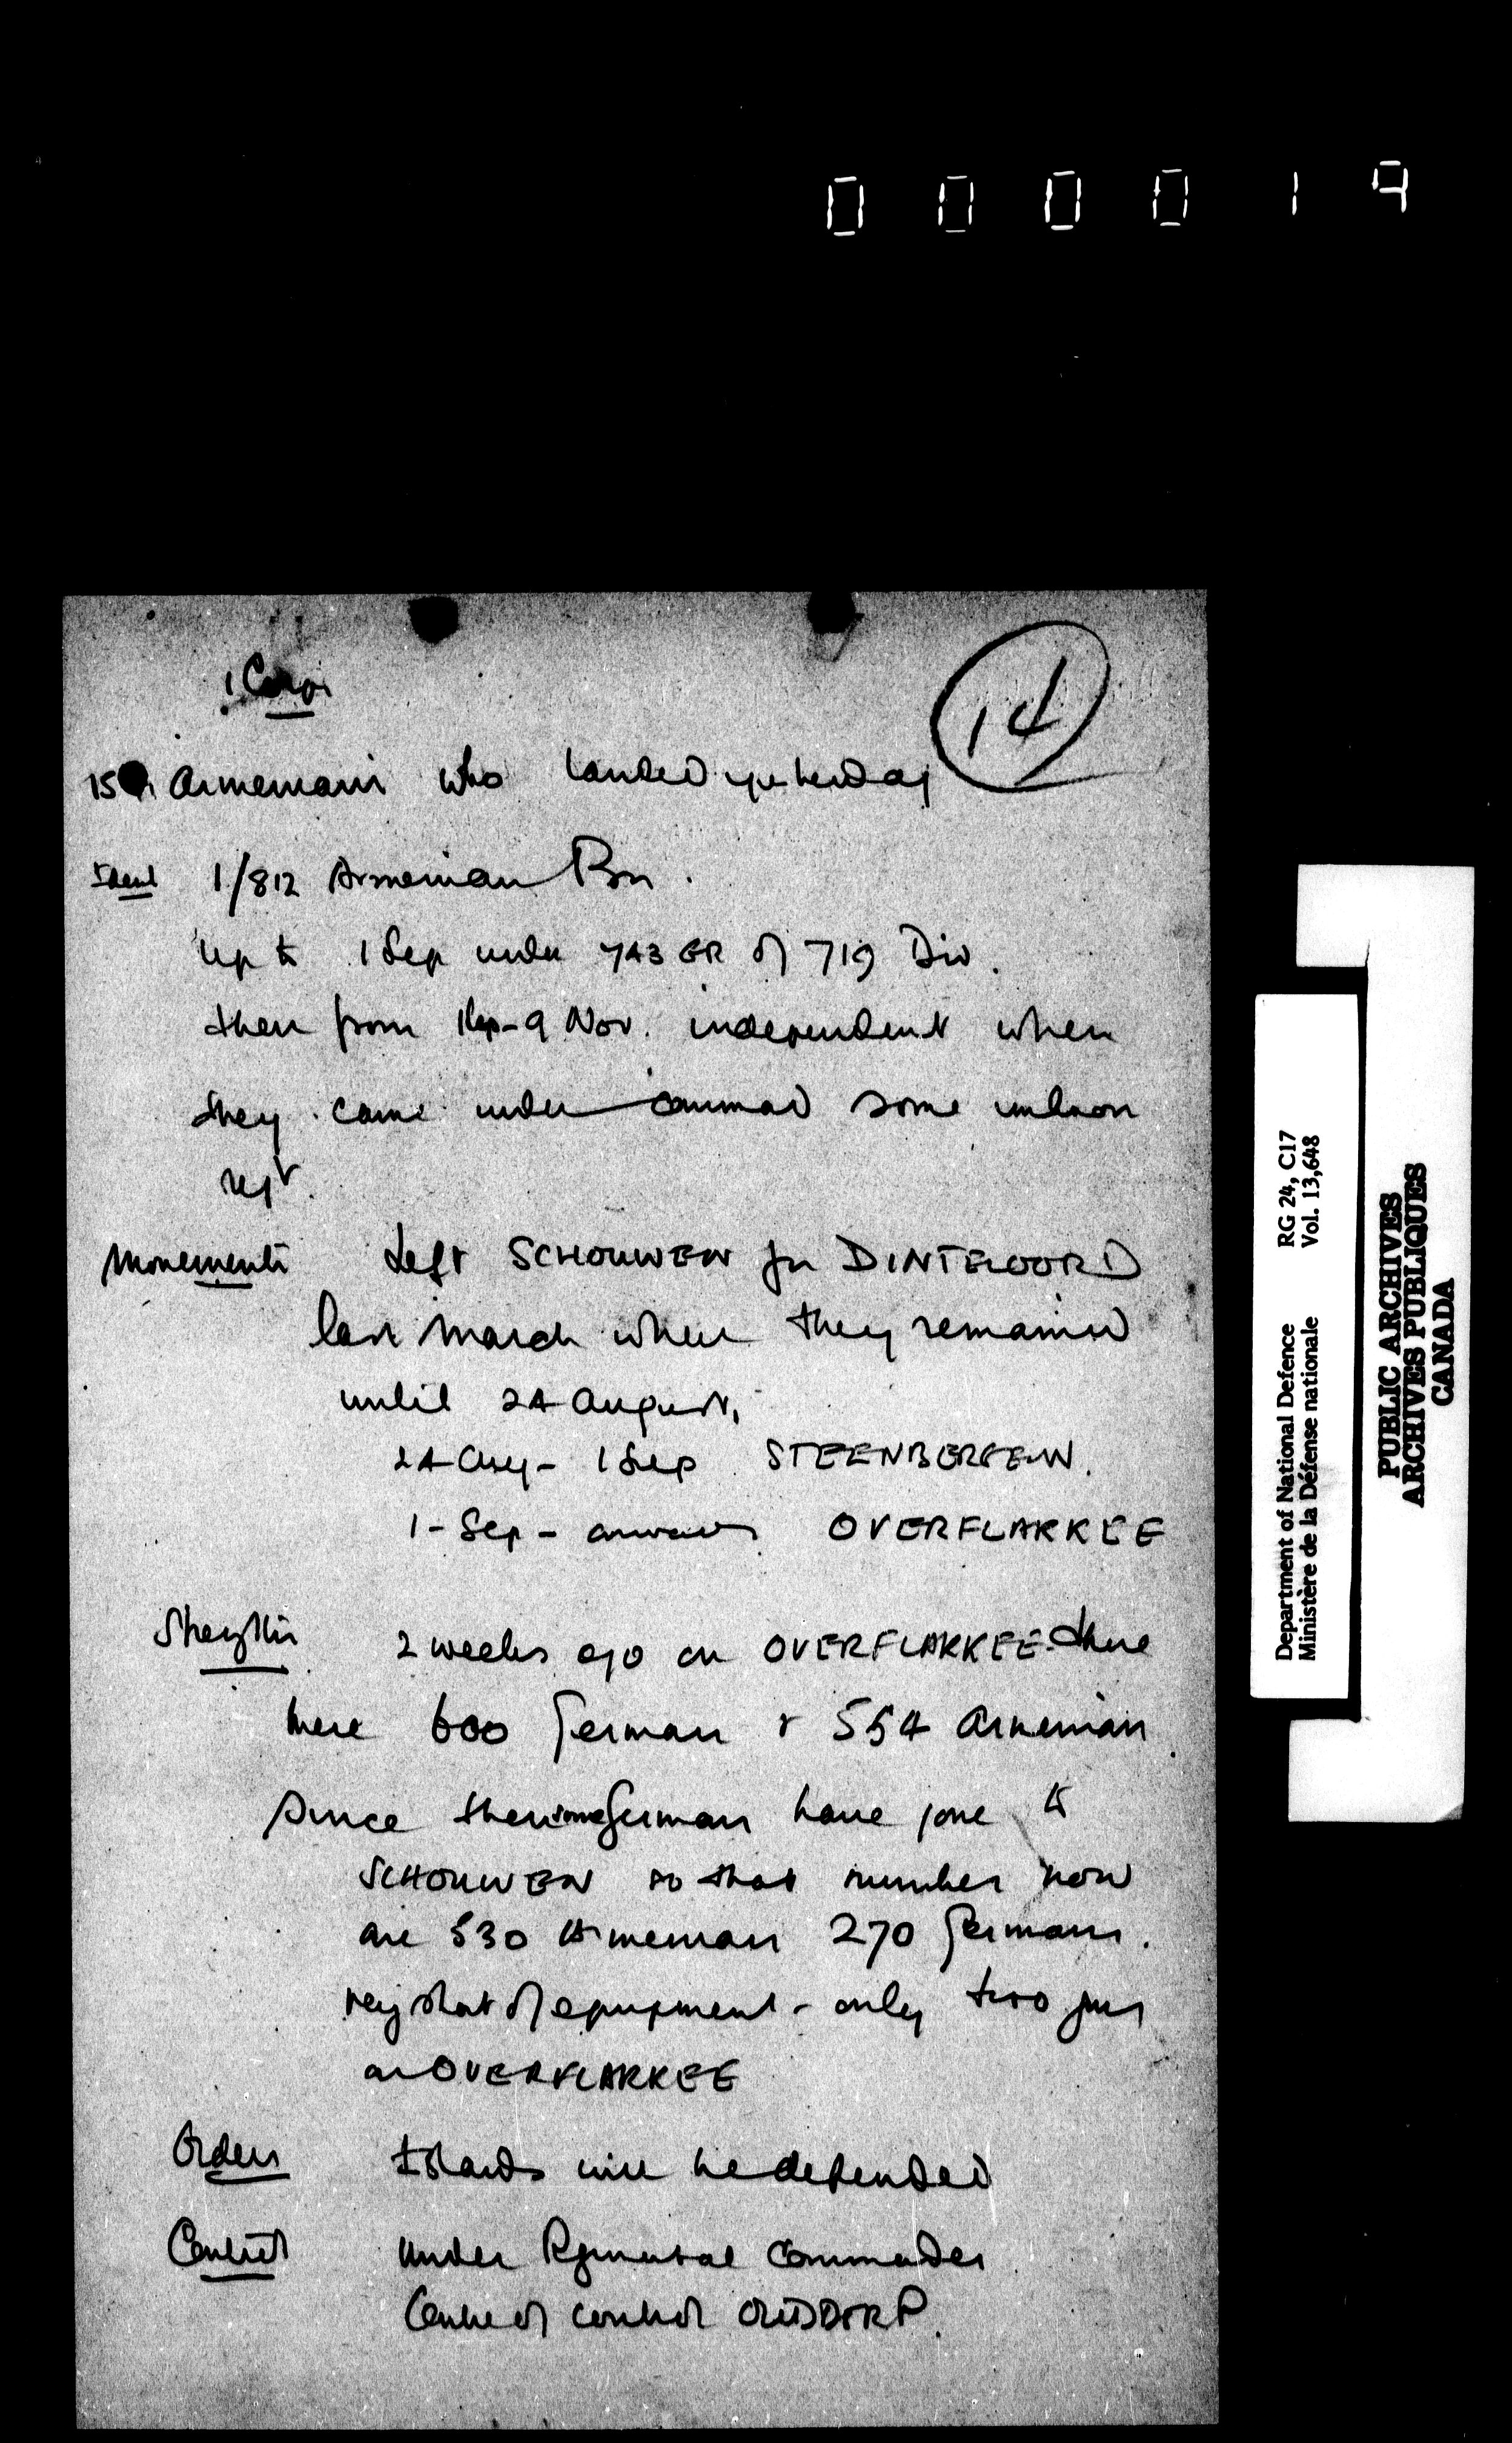 000019
1 Corps
14
15 Armenians who landed yesterday
Ident 1/812 Armenian Bn.
Up to 1 Sep under 743 GR of 719 Div.
then from 1 Sep - 9 Nov. independent when
they came under command some unknown
regt.
Movements Left SCHOUWEN for DINTELOORD
last March where they remained
until 24 August,
24 Aug - 1 Sep STEENBERGEN.
1 - Sep - onwards OVERFLAKKEE
Strengths 2 weeks ago on OVERFLAKKEE there
were 600 German & 554 Armenian
Since then some German have gone to
SCHOUWEN so that number now
are 530 Armenian 270 Germans.
Very short of equipment - only two guns
on OVERFLAKKEE
Orders Islands will be defended
Control Under Regimental Commander
Centre of control OUDDORP.
Department of National Defence RG 24, C17
Ministère de la Défense nationale Vol. 13,648
PUBLIC ARCHIVES
ARCHIVES PUBLIQUES
CANADA